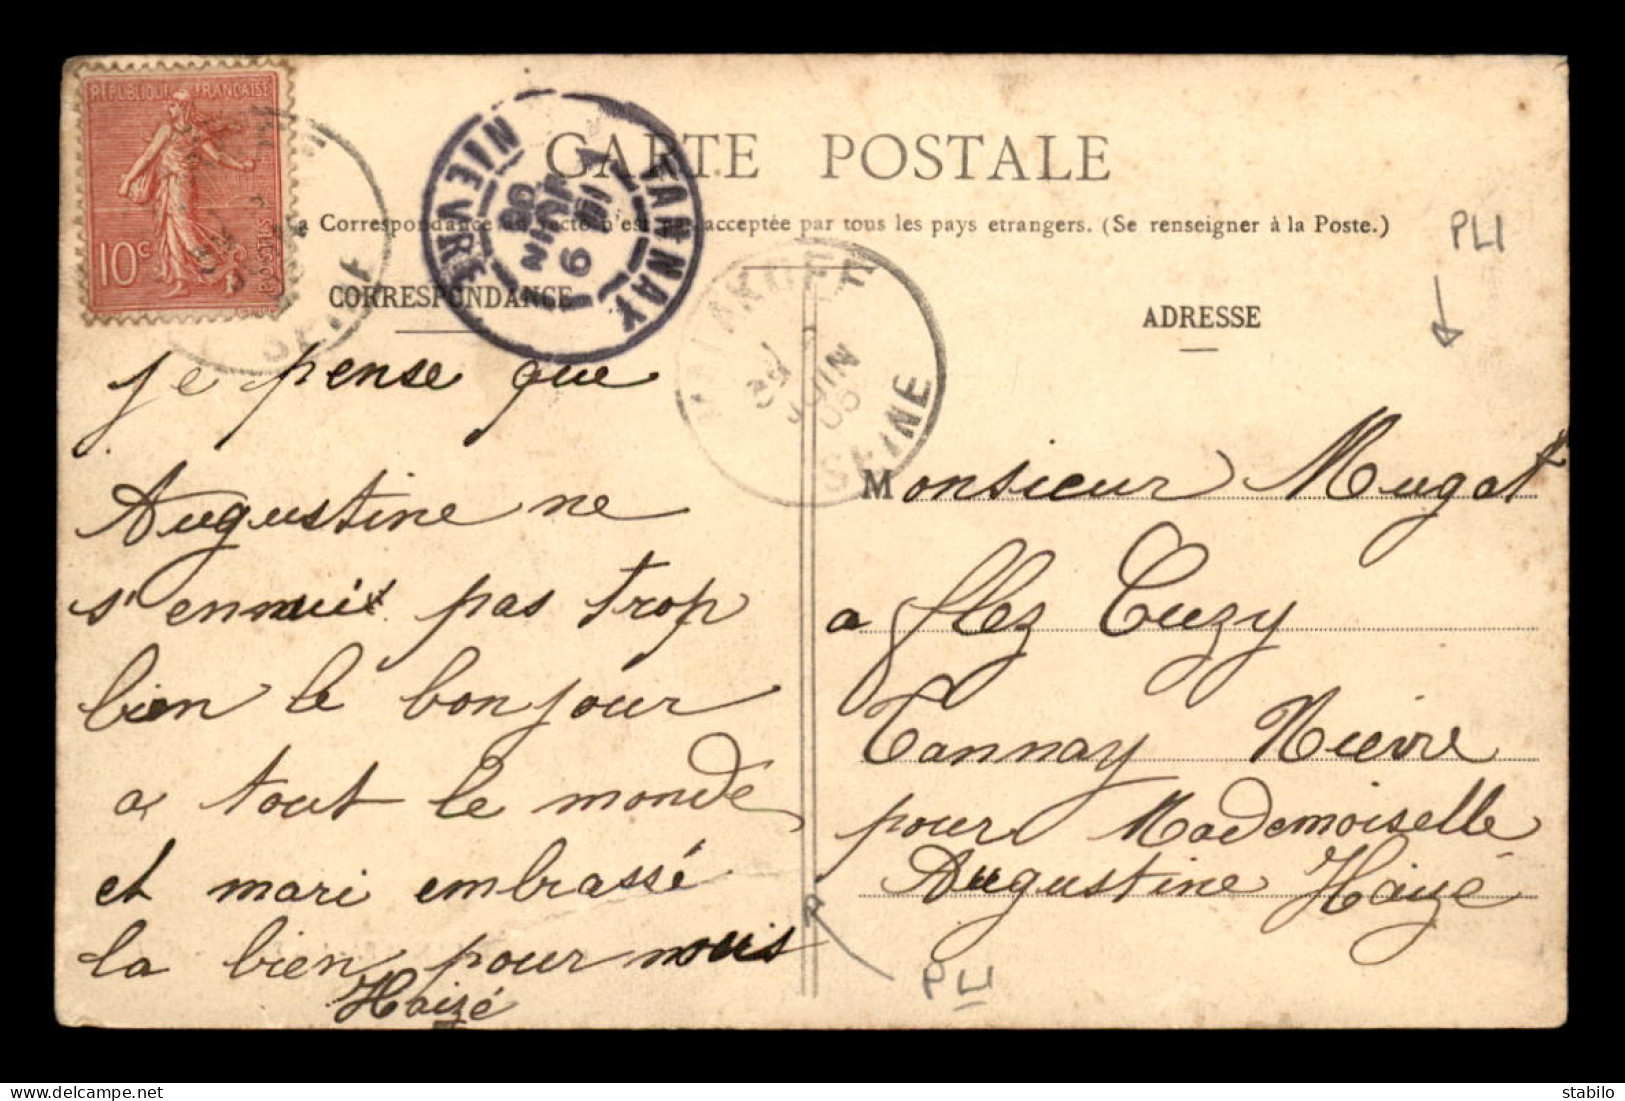 REPUBLIQUE FRANÇAISE
10c
POSTES
CARTE POSTALE
La Correspondance au recto n'est pas acceptée par tous les pays etrangers. (Se renseigner à la Poste.)
TANNAY
NIEVRE
6
JUIN
06
CORRESPONDANCE
je pense que
Augustine ne
s'ennuit pas trop
bien le bonjour
a tout le monde
et mari embrassé
la bien pour nous
Haizé
SEINE
JUIN
SEINE
ADRESSE
PLI
Monsieur Mugat
a flez Cuzy
Tannay Nievre
pour Mademoiselle
Augustine Haizé
PLI
www.delcampe.net
stabilo